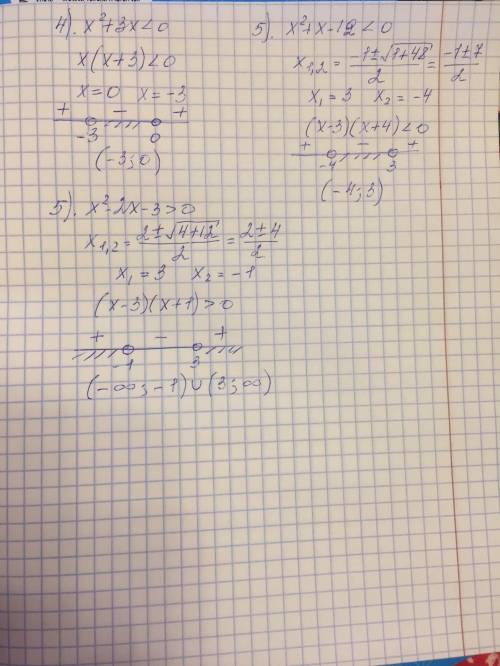 4). x²+3x<0
x(x+3)<0
x=0 x=-3
+ - +
-3 0
(-3;0)
5). x²+x-12<0
x₁,₂ = (-1±√(1+48))/2 = (-1±7)/2
x₁=3 x₂=-4
(x-3)(x+4)<0
+ - +
-4 3
(-4;3)
5). x²-2x-3>0
x₁,₂ = (2±√(4+12))/2 = (2±4)/2
x₁=3 x₂=-1
(x-3)(x+1)>0
+ - +
-1 3
(-∞;-1)∪(3;∞)